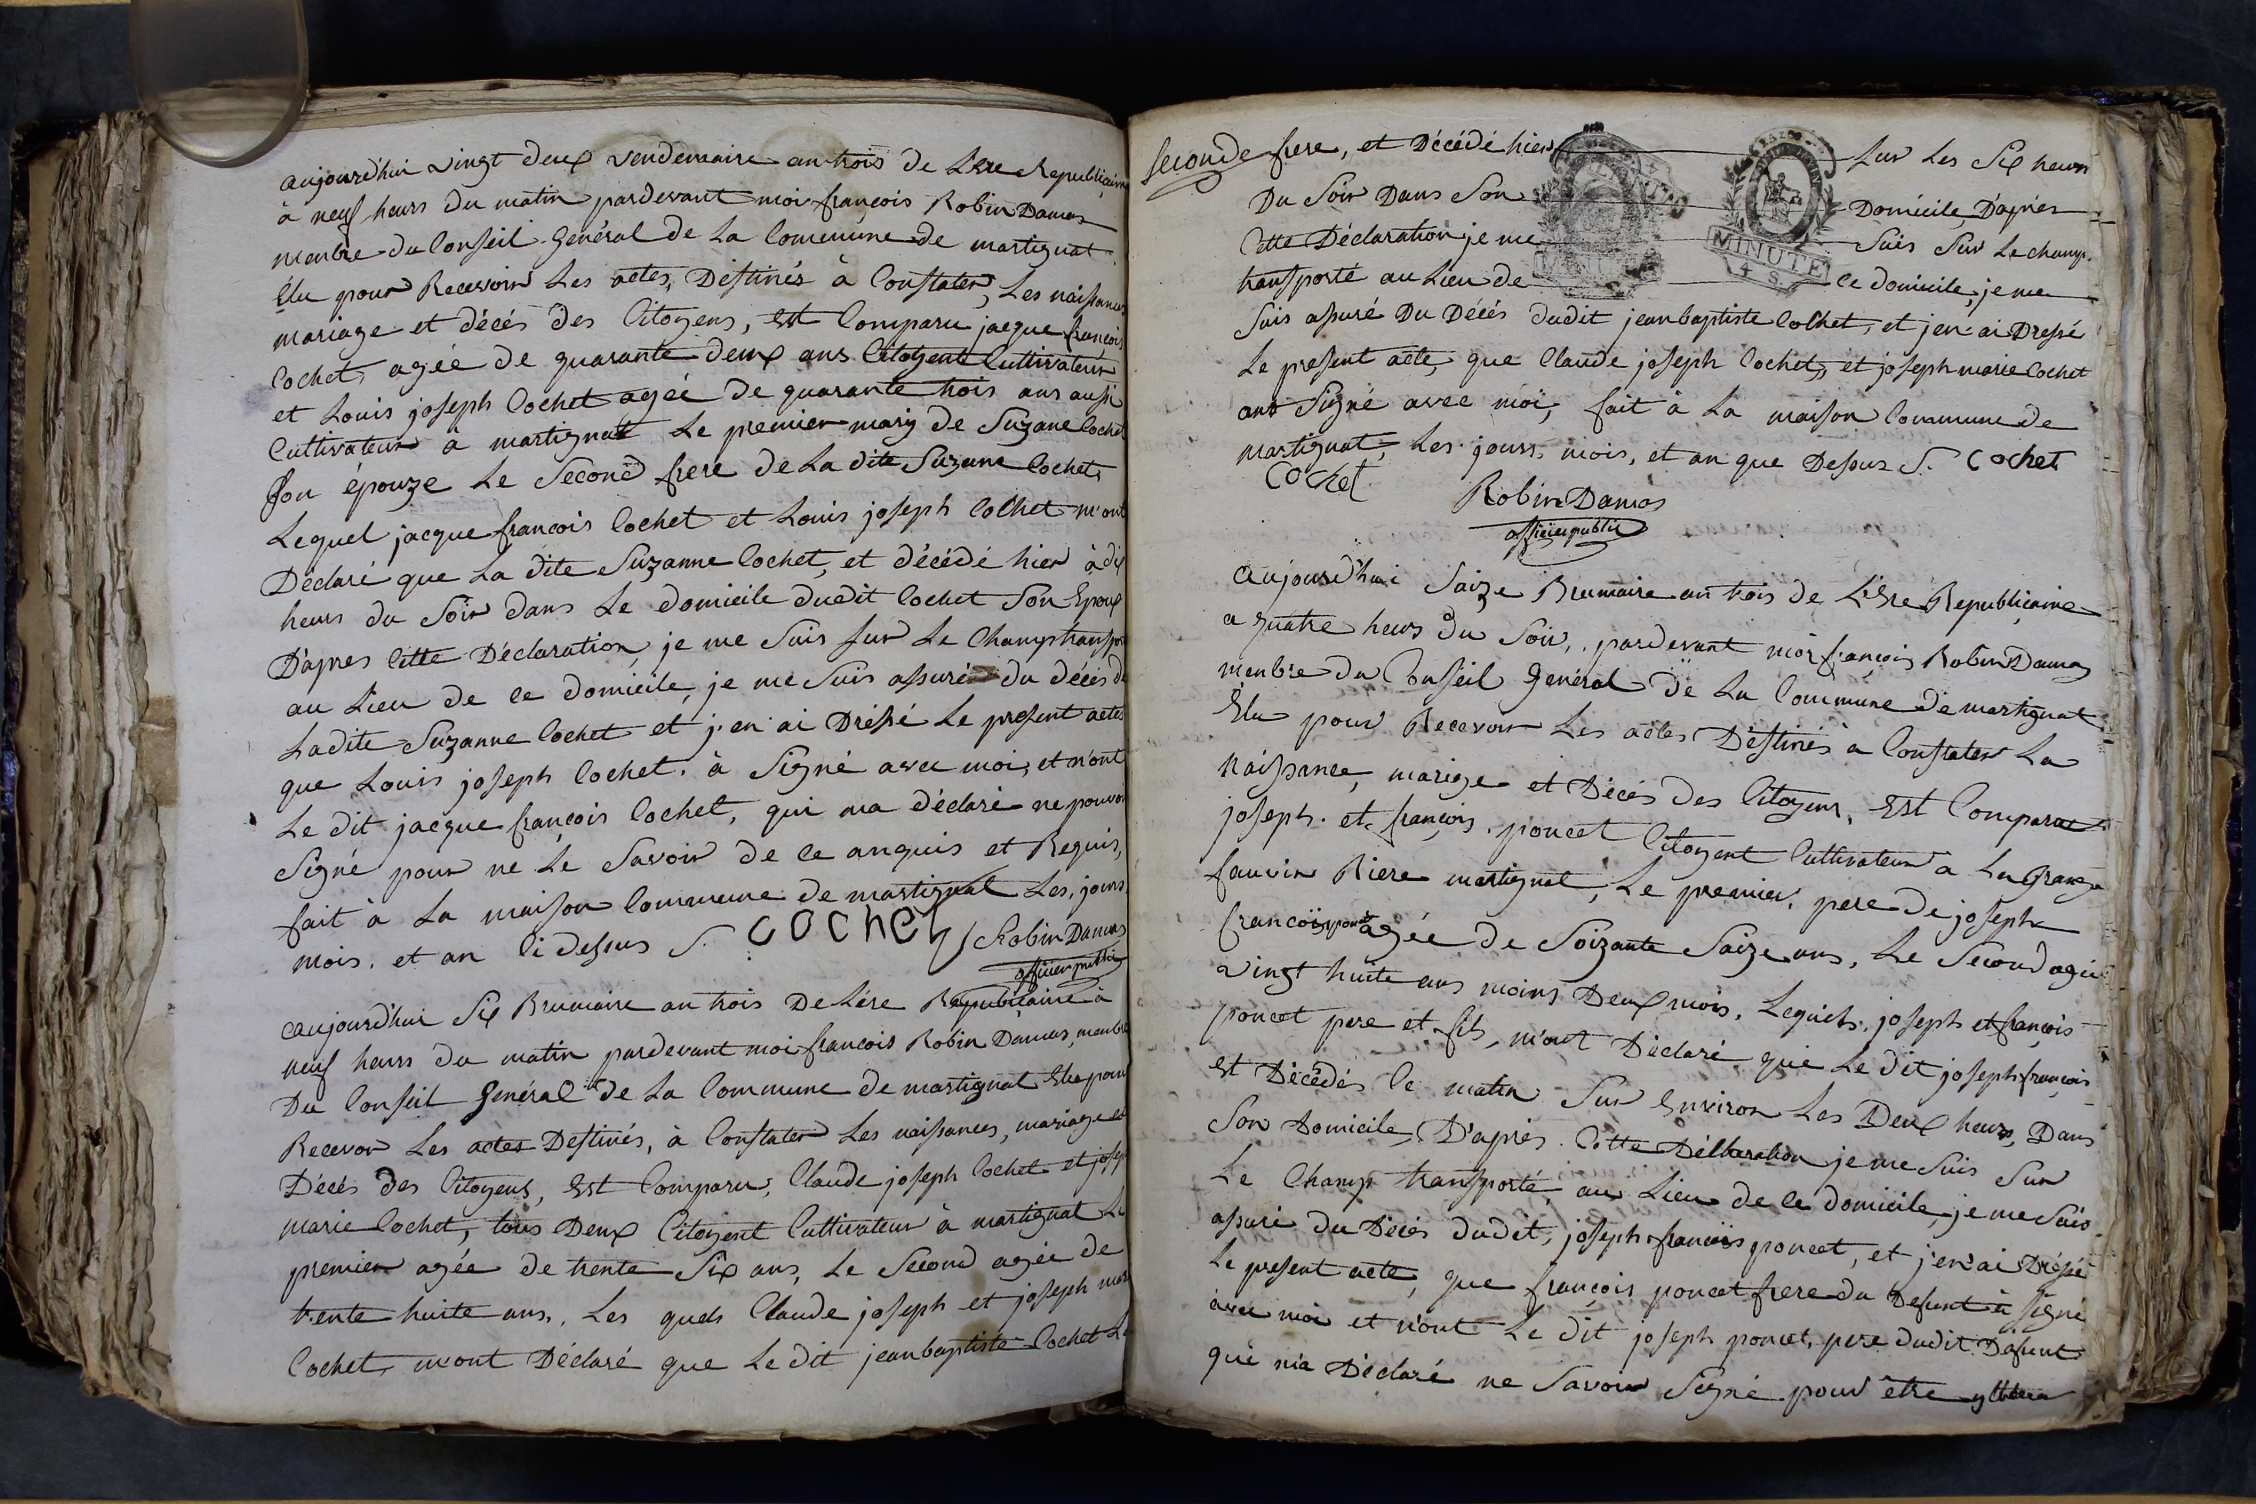 aujourd'hui vingt deux vendemaire an trois de L'ere Republicaine
à neuf heurs du matin pardevant moi françois Robin Damas
menbre du Conseil Général de La Commune de martignat
Élu pour Recevoir Les actes, Destinés à Constater, Les naissances
mariage et décés des Citoyens, Est Comparu jacque françois
Cochet, agée de quarante deux ans Citoyent Cultivateur
et Louis joseph Cochet agée de quarante trois ans aussi
Cultivateur à martignat Le premier mary de Suzane Cochet
son épouze Le Second frere de La dite Suzanne Cochet,
Lequel jacque françois Cochet et Louis joseph Cochet m'ont
Déclaré que La dite Suzanne Cochet, et décédé hier à dix
heurs du Soir dans Le domicile dudit Cochet Son Epoux
D'apres Cette Déclaration, je me Suis sur Le Champ transporté
au Lieu de ce domicile, je me Suis assuré du décés de
Ladite Suzanne Cochet et j'en ai Dréssé Le present actes
que Louis joseph Cochet. à Signé avec moi, et n'ont
Le dit jacque françois Cochet, qui ma déclaré ne pouvoir
Signé pour ne Le Savoir de ce anquis et Requis,
fait à La maison Commune de martignat Les, jours
mois. et an Ci dessus S. COCHET Robin Damas
officier public
aujourd'hui Six Brumaire an trois De L'ére Republicaine à
neuf heurs du matin pardevant moi francois Robin Damas, menbre
Du Conseil Général de La Commune de martignat Elu pour
Recevoir Les actes Destinés, à Constater Les naissances, mariage et
Décés des Citoyens, Est Comparu, Claude joseph Cochet et joseph
marie Cochet, tous Deux Citoyent Cultivateur à martignat Le
premier agée de trente Six ans, Le Second agée de
trente huite ans, Les quels Claude joseph et joseph marie
Cochet, m'ont Déclaré que Le dit jean baptiste Cochet Le
seconde frere, et Décédé hier sur Les Six heurs
Du Soir Dans Son Domicile, D'aprés
Cette Déclaration je me Suis Sur Le champ
transporté au Lieu de ce domicile, je me
MINUTE
4 S
Suis assuré Du Décés dudit jean baptiste Cochet, et j'en ai Dressé
Le present acte, que Claude joseph Cochet, et joseph marie Cochet
ont Signé avec moi, fait à La maison Commune de
martignat, Les jours, mois, et an que Dessus S. Cochet
Cochet
Robin Damas
officier public
aujourd'hui Saize Brumaire an trois de L'Ere Republicaine
a quatre heurs du Soir, pardevant moi françois Robin Damas
menbre du Conseil Général de La Commune de martignat
Elu pour Recevoir Les actes Destinés à Constater La
Naissance, mariage et Décés des Citoyens, Est Comparu
joseph. et françois. poncet Citoyent Cultivateur à La Grange
fauvin Riere martignat, Le premier. pere de joseph
francois poncet agée de Soizante Saize ans, Le Second agée
vingt huite ans moins Deux mois. Lequels, joseph et françois
poncet pere et fils, m'ont Déclaré que Le dit joseph françois
est Décédés Ce matin Sur Environ Les Deux heurs, Dans
Son Domicile, D'aprés. Cette Déllaration je me Suis Sur
Le Champ transporté au Lieu de ce domicile, je me Suis
assuré du Décés dudit, joseph francois poncet, et j'en ai Dréssé
Le present acte, que françois poncet frere du Defunt à signé
avec moi et n'ont Le dit joseph poncet, pere dudit Defunt
qui m'a Déclaré ne Savoir Signé pour être